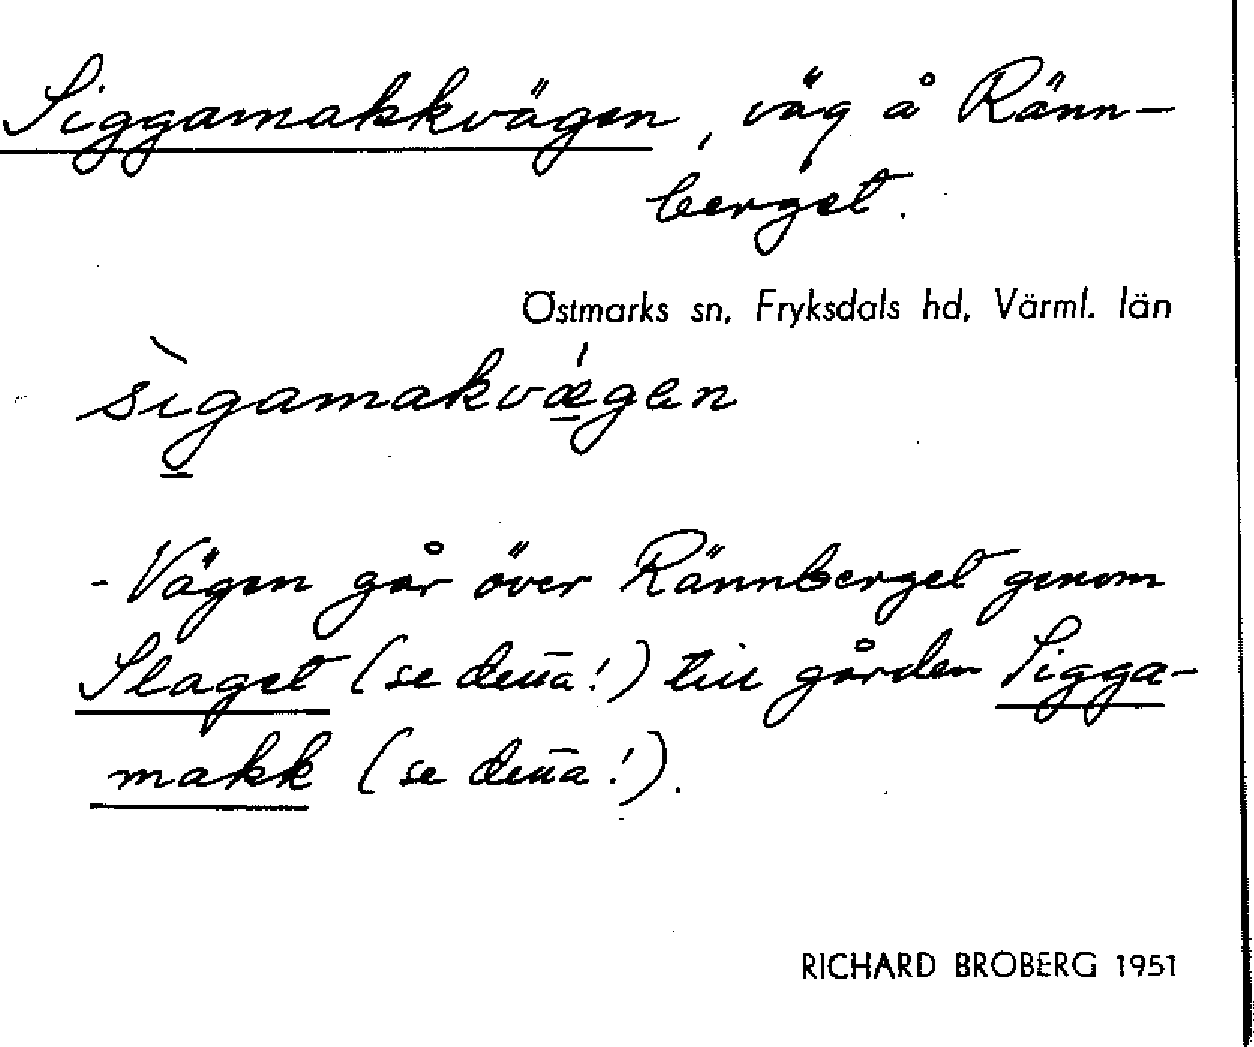 Siggamakkvägen, väg å Ränn-
berget.
Östmarks sn, Fryksdals hd, Värml. län
sìgamakvǽgen
- Vägen går över Rännberget genom
Slaget (se den̄a!) till gården Sigga-
makk (se den̄a!).
RICHARD BROBERG 1951